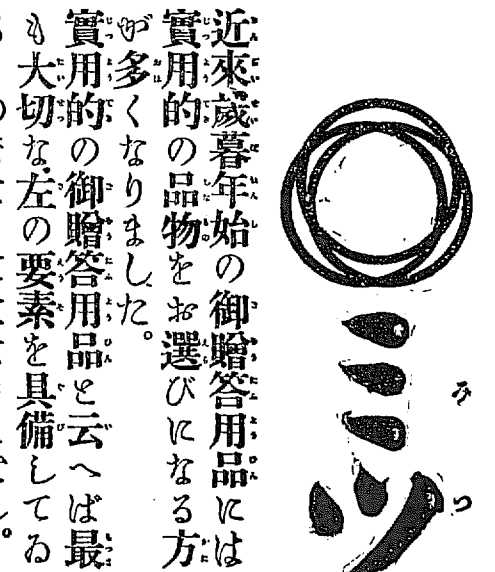 ミツ
みつ
近來歲暮年始の御贈答用品には
實用的の品物をお選びになる方
が多くなりました。
實用的の御贈答用品と云へば最
も大切な左の要素を具備してゐ